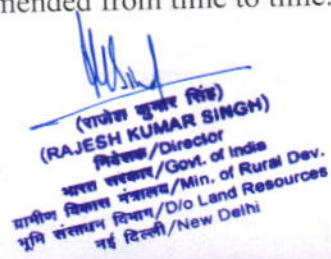 mended from time to time.
(राजेश कुमार सिंह)
(RAJESH KUMAR SINGH)
निदेशक/Director
भारत सरकार/Govt. of India
ग्रामीण विकास मंत्रालय/Min. of Rural Dev.
भूमि संसाधन विभाग/D/o Land Resources
नई दिल्ली/New Delhi